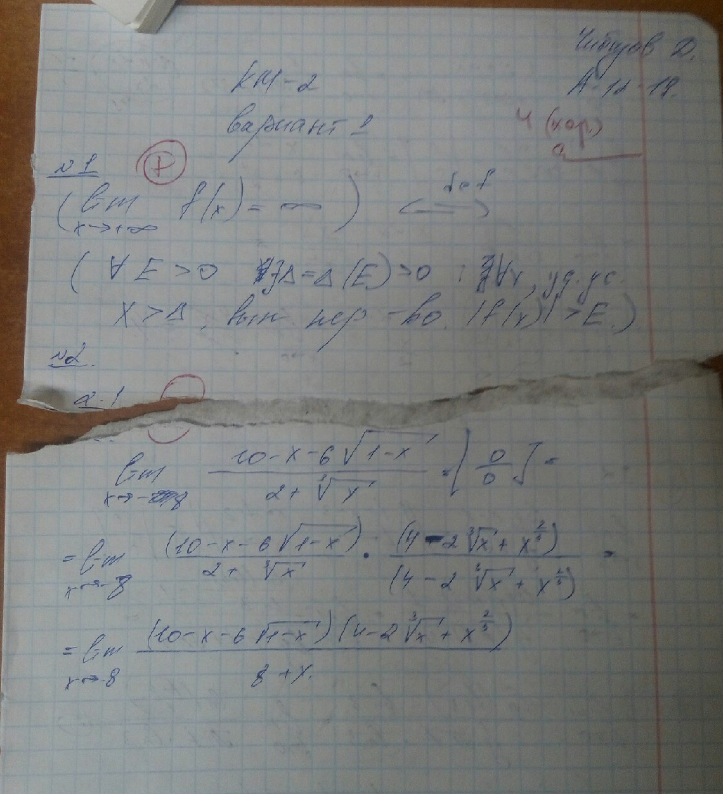 Д.
А-12-18.
КМ-2
вариант 1
4 (хор)
№1 +
(lim x→+∞ f(x) = ∞) ⟺ def
(∀ E > 0 ∃ Δ = Δ(E) > 0 : ∀x, уд. ус.
x > Δ, вып. нер-во |f(x)| > E.)
№2.
a-1
lim x→-8 (10-x-6√(1-x))/(2+∛x) = [0/0] =
= lim x→-8 (10-x-6√(1-x))/(2+∛x) · (4-2∛x+x^(2/3))/(4-2∛x+x^(2/3)) =
= lim x→-8 (10-x-6√(1-x))(4-2∛x+x^(2/3))/(8+x).